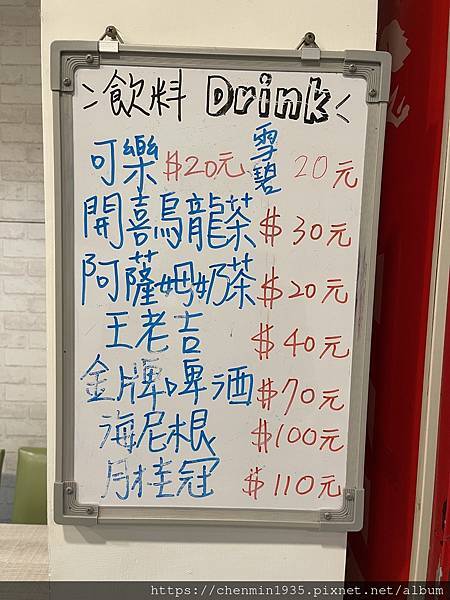 飲料 Drink
可樂 $20元 雪碧 20元
開喜烏龍茶 $30元
阿薩姆奶茶 $20元
王老吉 $40元
金牌啤酒 $70元
海尼根 $100元
月桂冠 $110元
https://chenmin1935.pixnet.net/album